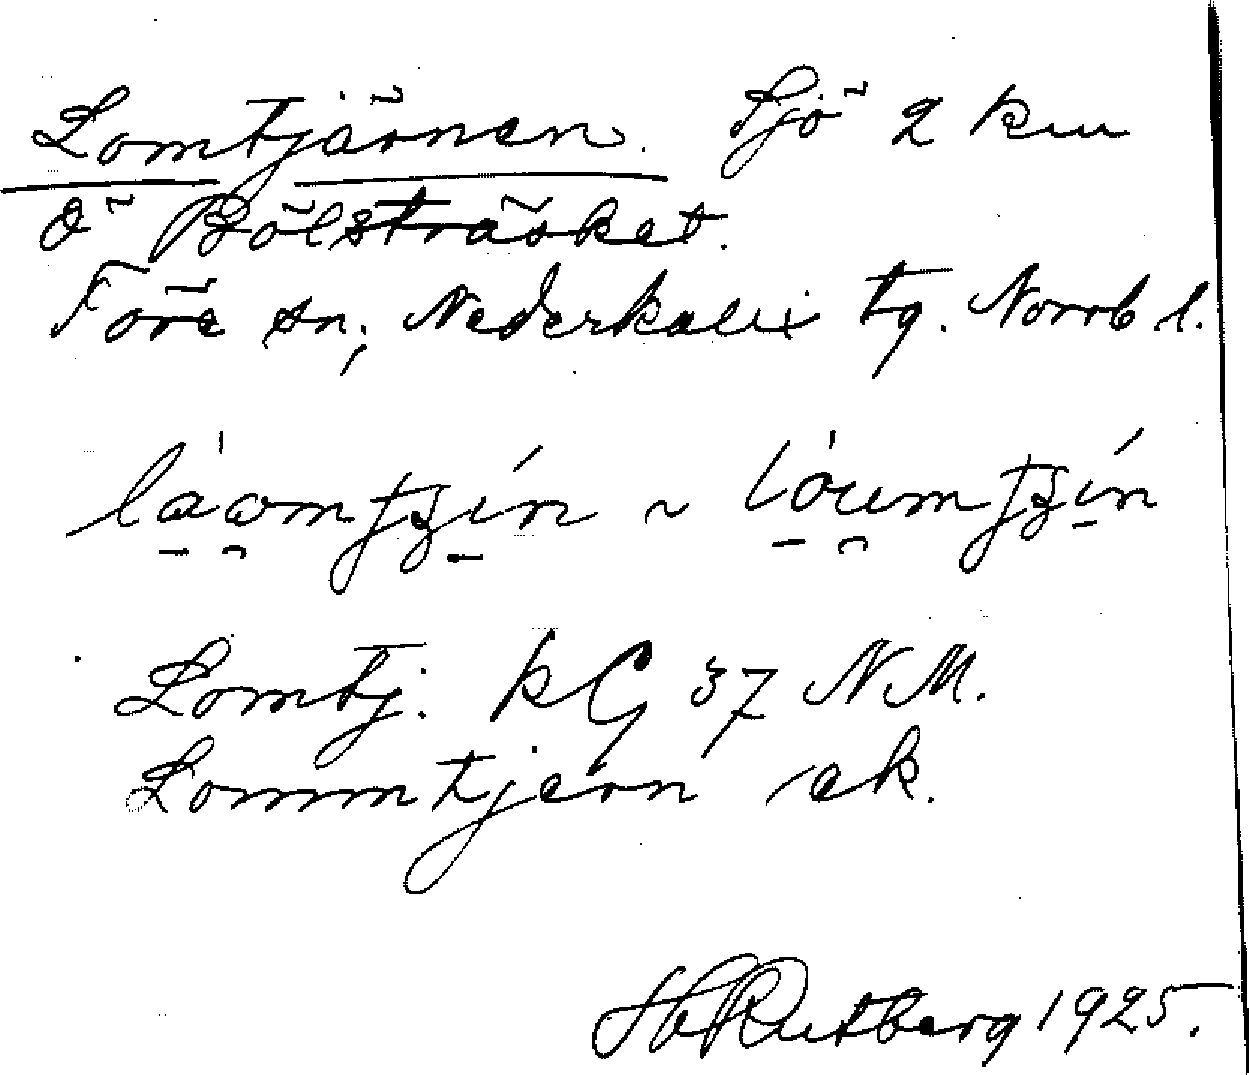 Lomtjärnen. Sjö 2 km
ö Bölsträsket.
Töre sn, Nederkalix tg. Norrb l.
Lomtj. kG 37 NM.
Lommtjern ek.
Hb Rutberg 1925.